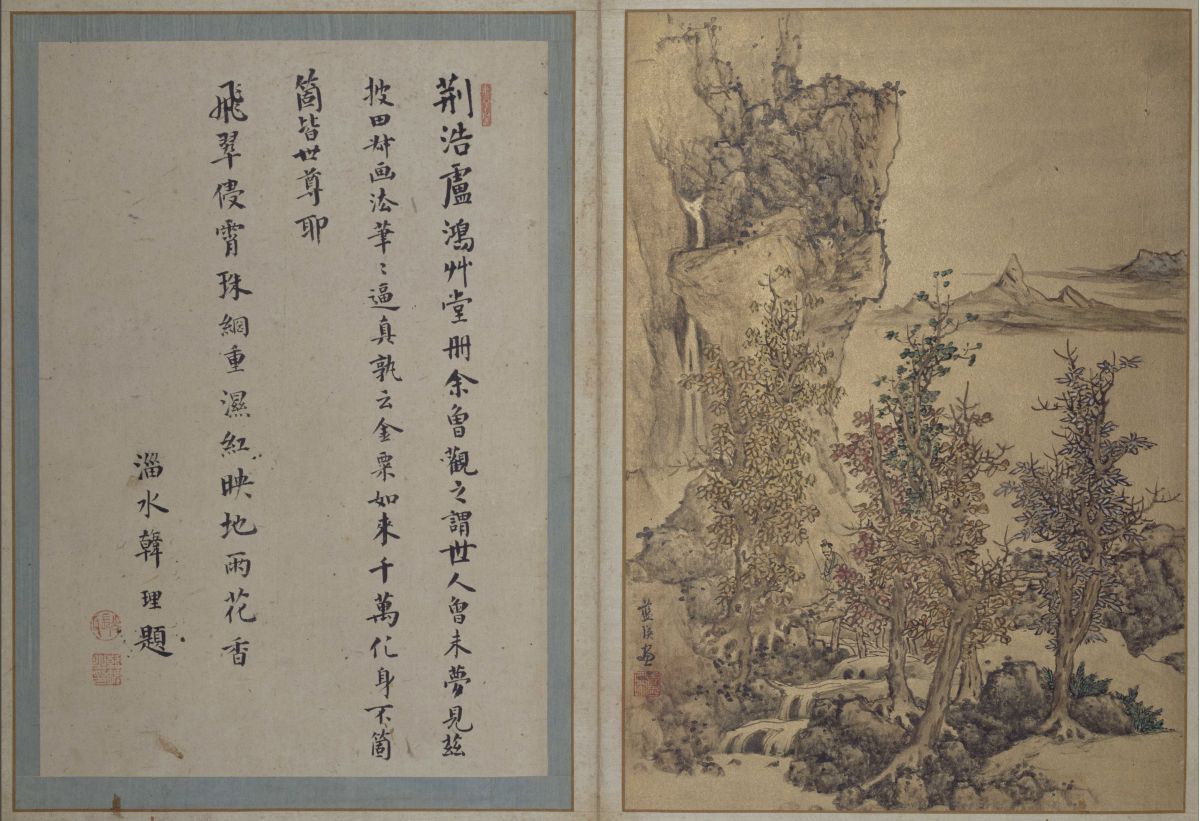 荆浩盧鴻艸堂冊余曾觀之謂世人曾未夢見茲
披田叔画法筆〻逼真孰云金粟如來千萬化身不箇
箇皆世尊耶
飛翠侵霄珠網重濕紅映地雨花香
淄水韓理題
藍瑛畫